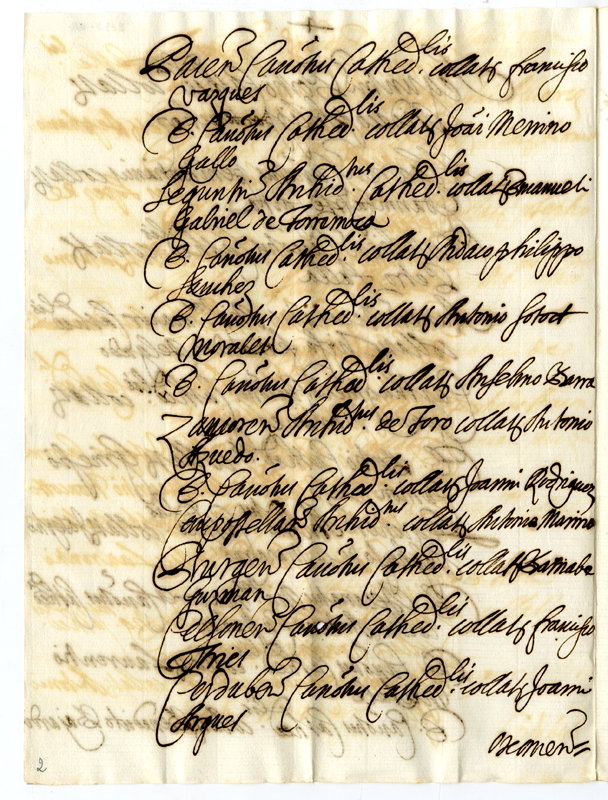 Pacen. Canõtus Cathed.lis collat. francisco
Vazques
B. Canõtus Cathed.lis collat. Joãi Merino
Gallo
Seguntin. Archid.tus Cathed.lis collat. Emanueli
Gabriel de Torremoca
B. Canõtus Cathed.lis collat. Didaco philippo
Sanchez
B. Canõtus Cathed.lis collat. Antonio Soto et
Morales
B. Canõtus Cathed.lis collat. Anselmo Barra
Zamoren. Archid.tus de Toro collat. Antonio
Azuedo.
B. Canõtus Cathed.lis collat. Joanni Rodriguez
Compostellan. Archid.tus collat. Antonio Marino
Burgen. Canõtus Cathed.lis collat. Barnabe
Guzman
Celsonen. Canõtus Cathed.lis collat. francisco
Corduben. Canõtus Cathed.lis collat. Joanni
2